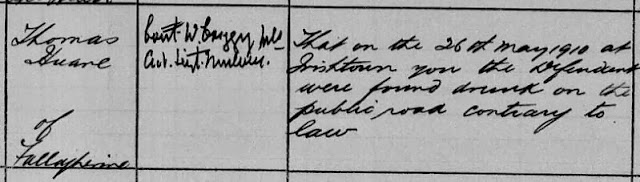 Thomas
Duane
of
Const. W
Act. Sergt.
That on the 26th May 1910 at
Irishtown you the Defendant
were found drunk on the
public road contrary to
law